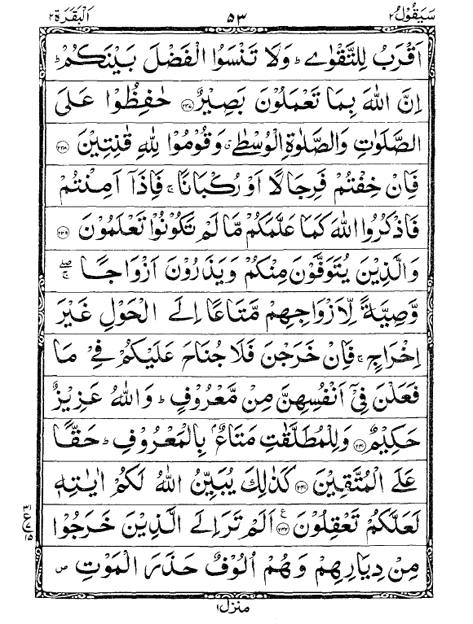 سَيَقُوْلُ ٢ ٥٣ اَلْبَقَرَة ٢
اَقْرَبُ لِلتَّقْوٰى ؕ وَلَا تَنْسَوُا الْفَضْلَ بَيْنَكُمْ ؕ
اِنَّ اللّٰهَ بِمَا تَعْمَلُوْنَ بَصِيْرٌ ﴿۲۳۷﴾ حٰفِظُوْا عَلَى
الصَّلَوٰتِ وَالصَّلٰوةِ الْوُسْطٰى ۗ وَقُوْمُوْا لِلّٰهِ قٰنِتِيْنَ ﴿۲۳۸﴾
فَاِنْ خِفْتُمْ فَرِجَالًا اَوْ رُكْبَانًا ۚ فَاِذَاۤ اَمِنْتُمْ
فَاذْكُرُوا اللّٰهَ كَمَا عَلَّمَكُمْ مَّا لَمْ تَكُوْنُوْا تَعْلَمُوْنَ ﴿۲۳۹﴾
وَالَّذِيْنَ يُتَوَفَّوْنَ مِنْكُمْ وَيَذَرُوْنَ اَزْوَاجًا ۖۚ
وَّصِيَّةً لِّاَزْوَاجِهِمْ مَّتَاعًا اِلَى الْحَوْلِ غَيْرَ
اِخْرَاجٍ ۚ فَاِنْ خَرَجْنَ فَلَا جُنَاحَ عَلَيْكُمْ فِيْ مَا
فَعَلْنَ فِيْۤ اَنْفُسِهِنَّ مِنْ مَّعْرُوْفٍ ؕ وَاللّٰهُ عَزِيْزٌ
حَكِيْمٌ ﴿۲۴۰﴾ وَلِلْمُطَلَّقٰتِ مَتَاعٌۢ بِالْمَعْرُوْفِ ؕ حَقًّا
عَلَى الْمُتَّقِيْنَ ﴿۲۴۱﴾ كَذٰلِكَ يُبَيِّنُ اللّٰهُ لَكُمْ اٰيٰتِهٖ
لَعَلَّكُمْ تَعْقِلُوْنَ ﴿۲۴۲﴾ ع اَلَمْ تَرَ اِلَى الَّذِيْنَ خَرَجُوْا
مِنْ دِيَارِهِمْ وَهُمْ اُلُوْفٌ حَذَرَ الْمَوْتِ ۪
منزل ١